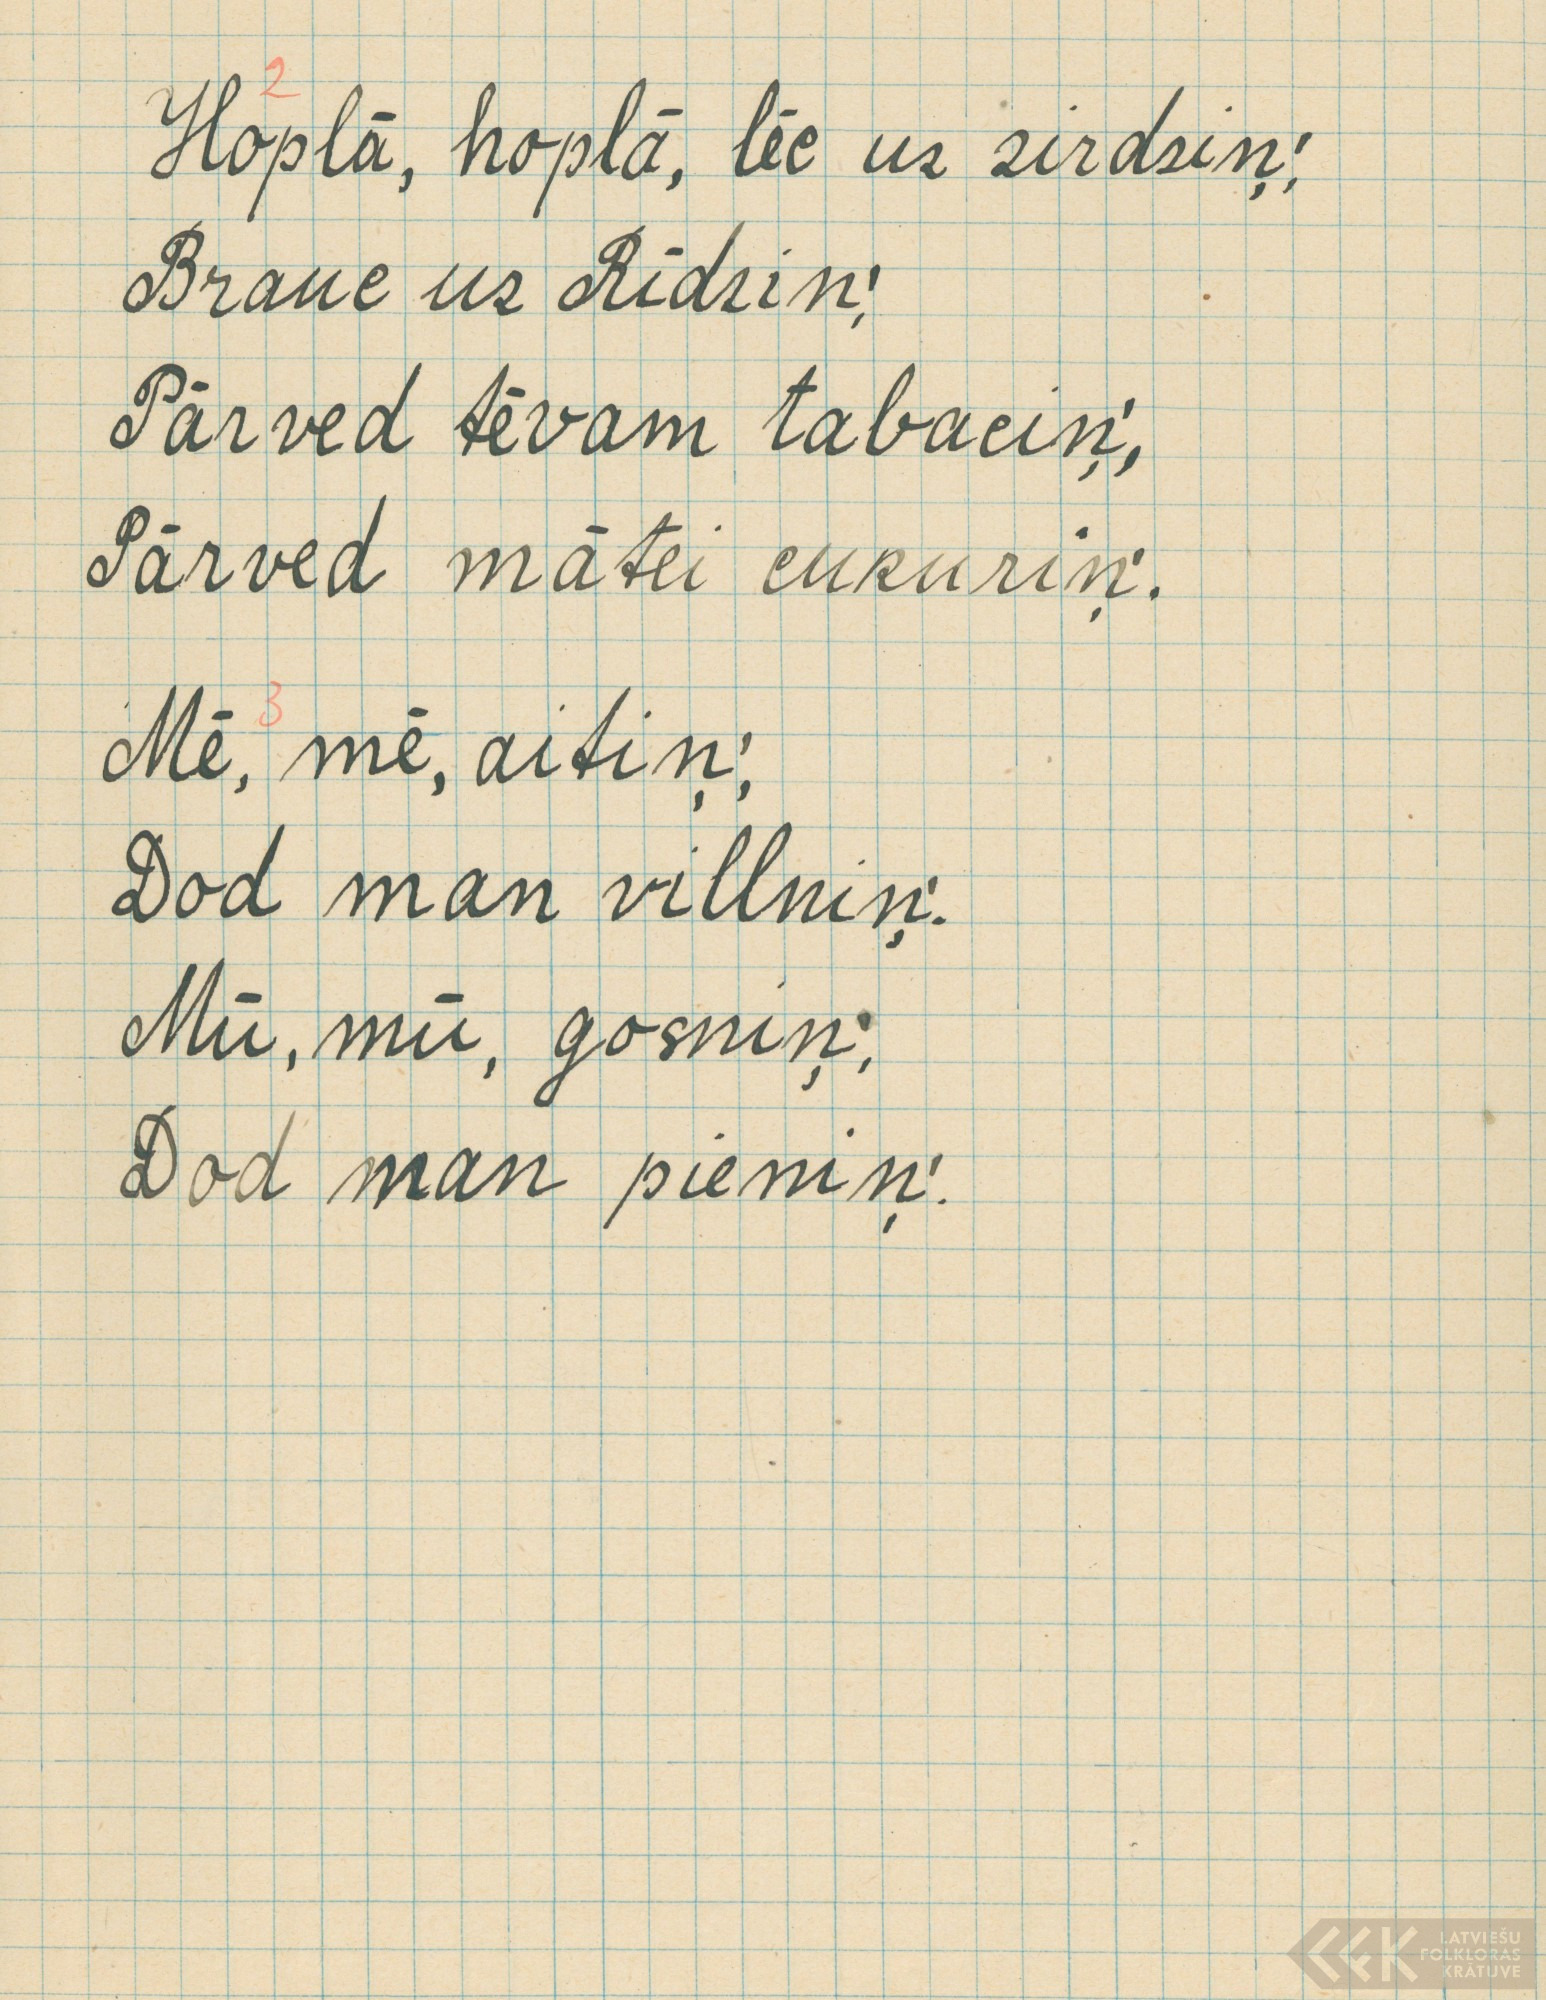 2
Hoplā, hoplā, lēc uz zirdziņ',
Brauc uz Rīdzin',
Pārved tēvam tabaciņ',
Pārved mātei cukuriņ'.
3
Mē, mē, aitiņ',
Dod man villniņ'.
Mū, mū, gosniņ',
Dod man pieniņ'.
LATVIEŠU
FOLKLORAS
KRĀTUVE